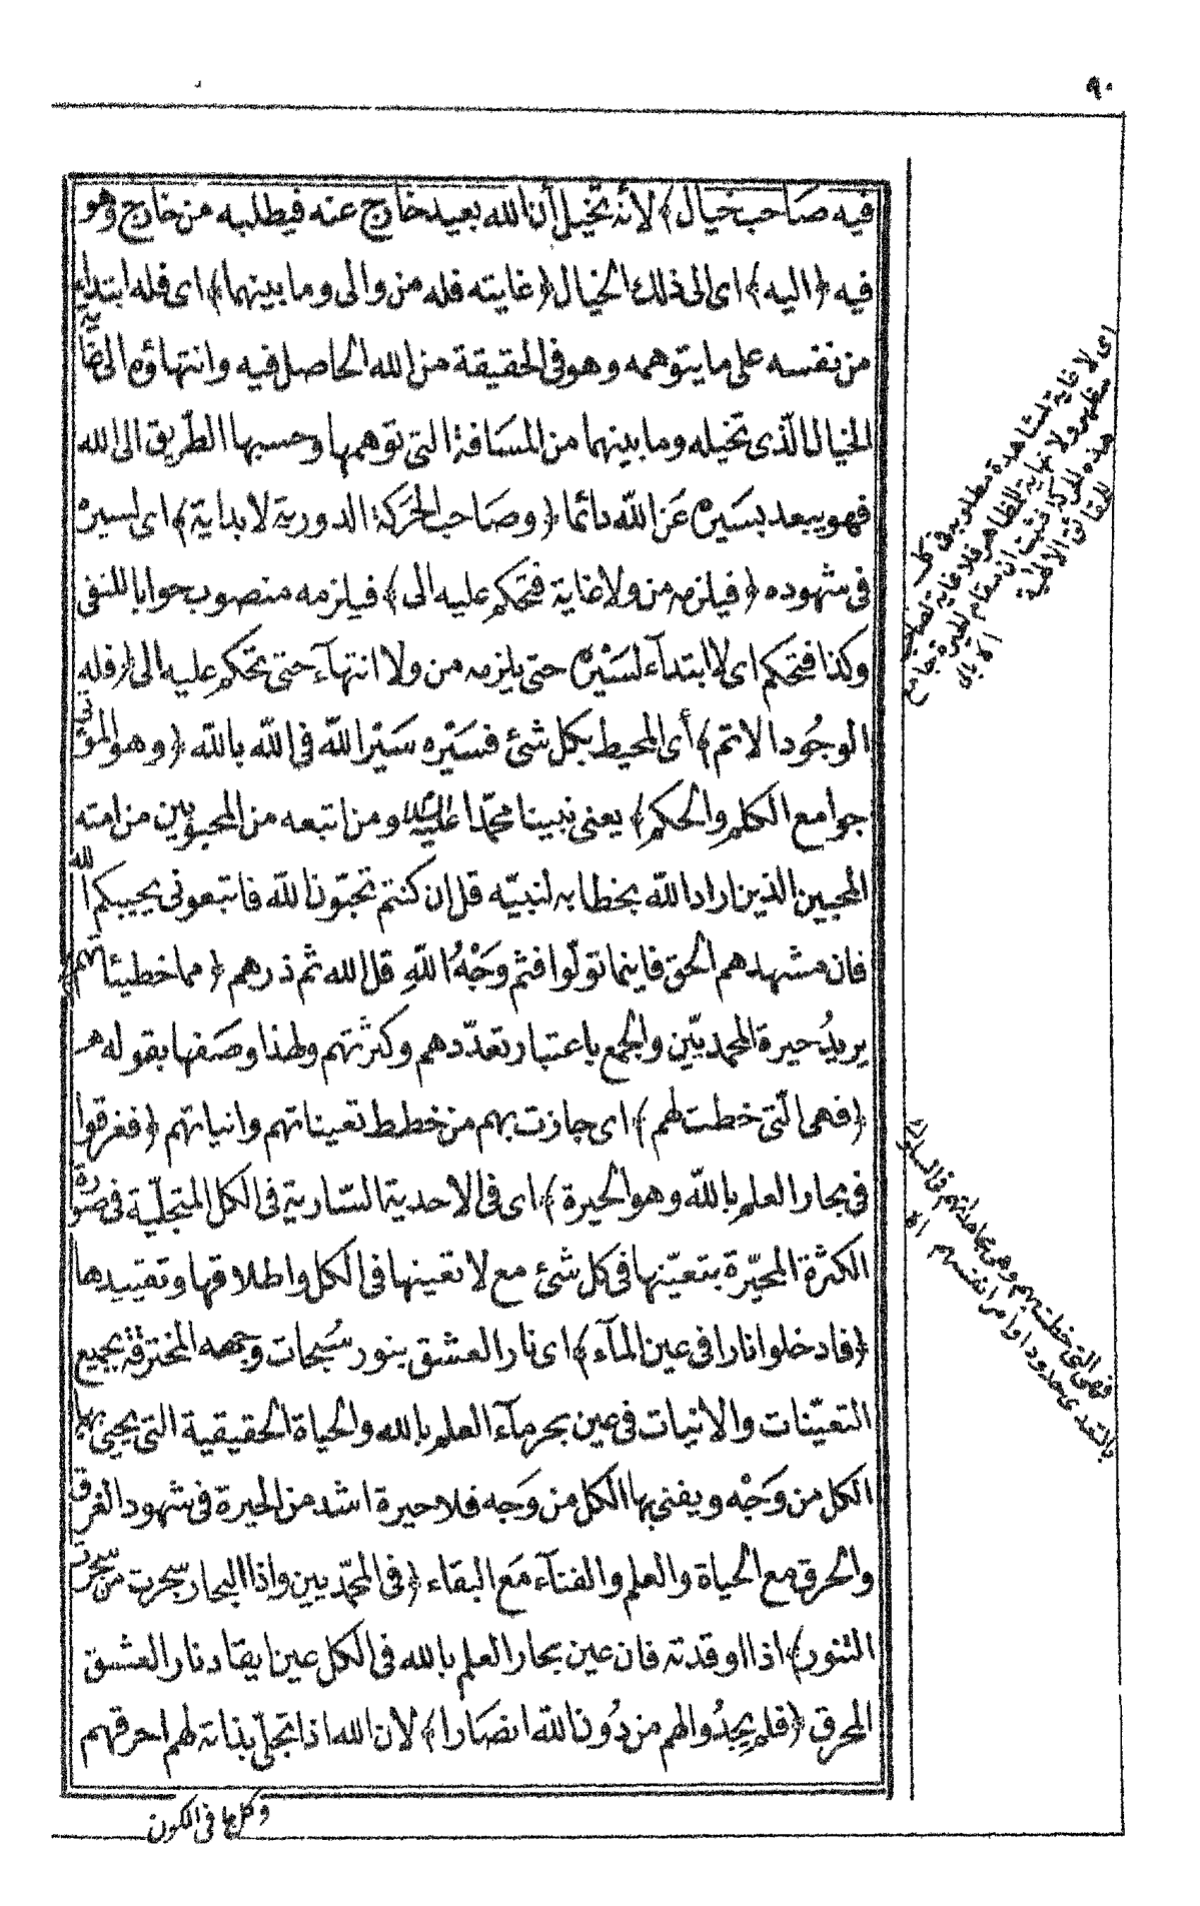 ٩٠
فيه صاحب خيال﴾ لأنه تخيل أن الله بعيد خارج عنه فيطلبه من خارج وهو
فيه ﴿اليه﴾ اى الى ذلك الخيال ﴿غايته فله من والى وما بينهما﴾ اى فله ابتداء
من نفسه على ما يتوهمه وهو فى الحقيقة من الله الحاصل فيه وانتهاؤه الى غاية
الخيال الّذى تخيله وما بينهما من المسافة التى توهمها وحسبها الطّريق الى الله
فهو يبعد بسَيره عَن اللّه دائما ﴿وصَاحب الحَركة الدورية لا بداية﴾ اى لسيره
فى شهوده ﴿فيلزمه من ولا غاية فتحكم عليه الى﴾ فيلزمه منصوب جوابا للنفى
وكذا فتحكم اى لا ابتدآء لسَيْره حتى يلزمه من ولا انتهآء حتى تحكم عليه الى ﴿فله
الوجُود الاتم﴾ أى المحيط بكل شئ فسَيْره سَيْر اللّه فى اللّه باللّه ﴿وهو الموتى
جوامع الكلم والحكم﴾ يعنى نبينا محمّدا عليه السلام ومن اتبعه من المحبوبين من امته
المحبين الذين اراد اللّه بخطابه لنبيّه قل ان كنتم تحبّون اللّه فاتبعونى يحببكم اللّه
فان مشهدهم الحق فاينما تولّوا فثم وَجْهُ اللّهِ قل الله ثم ذرهم ﴿مما خطيئاتهم﴾
يريدُ حيرة المحمديّين والجمع باعتبار تعدّدهم وكثرتهم ولهذا وصَفها بقوله
﴿فهى الّتى خطت لهم﴾ اى جازت بهم من خطط تعيناتهم وانياتهم ﴿فغرقوا
فى بحار العلم باللّه وهو الحيرة﴾ اى فى الاحدية السّارية فى الكل المتجلّية فى صورة
الكثرة المحيّرة بتعيّنها فى كل شئ مع لا تعينها فى الكل واطلاقها وتقييدها
﴿فادخلوا نارا فى عين المآء﴾ اى نار العشق بنور سُبحات وجهه المحترقة بجميع
التعيّنات والانيات فى عين بحر مآء العلم بالله والحياة الحقيقية التى يحيى بها
الكل من وَجْه ويفنى بها الكل من وَجه فلا حيرة اشد من الحيرة فى شهود الغرق
والحرق مع الحياة والعلم والفنآء مَع البقاء ﴿فى المحمّديين واذا البحار سجرت من سجرت
التنور﴾ اذا اوقدته فان عين بحار العلم بالله فى الكل عين ايقاد نار العشق
المحرق ﴿فلم يجدُوا لهم من دُون اللّه انصَارا﴾ لان الله اذا تجلّى بذاته لهم احرقهم
وكل ما فى الكون
اى لا غاية لمشاهدة مطلوبه فى كل
مظهر ولا نهاية للظاهر فلا غاية لصاحب
هذه الحركة فثبت ان مقام الحيرة جامع
للحقائق الالهية
اه بالى
فهى التى خطت بهم وهى مجاهداتهم فى السلوك
بالتعدى حدود اوامر انفسهم اه